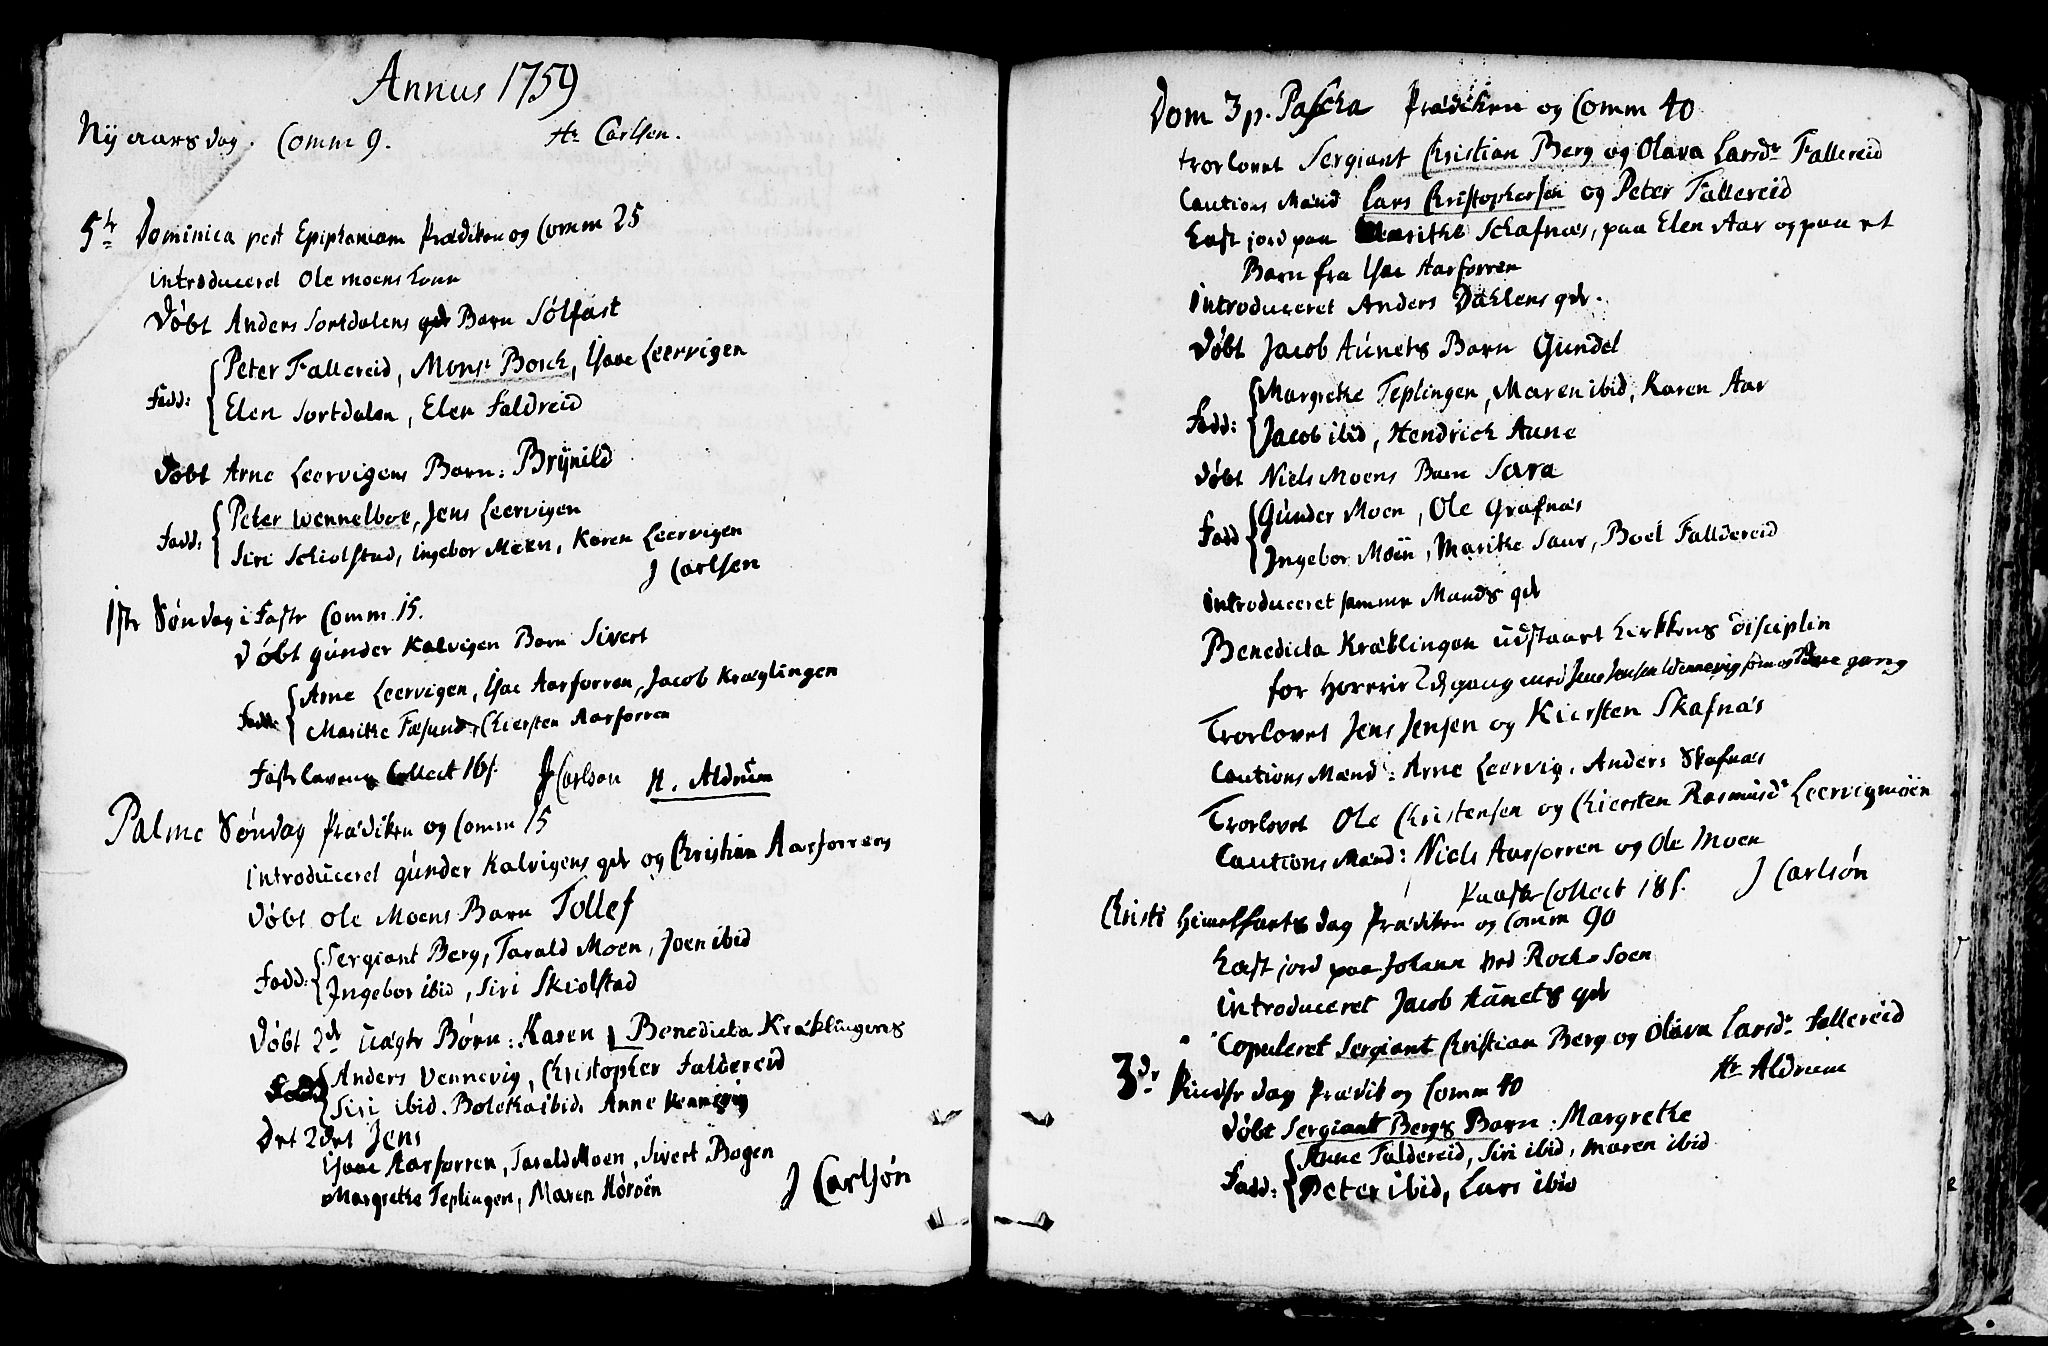 Annus 1759
Nyaarsdag. Comm 9. Hr Carlsen.
5te Dominica post Epiphaniam Prædiken og Comm 25
introduceret Ole Moens Kone
Døbt Anders Sortdalens Barn Sølfast
Fadd: Peter Fallereid, Monsr Bosch, Isac Leervigen
Elen Sortdalen, Elen Faldreid
Døbt Arne Leervigens Barn: Brynild
Fadd: Peter Wennelboe, Jens Leervigen
Siri Schiolstad, Ingebor Moen, Karen Leervigen
J Carlsen
1ste Søndag i Faste Comm 15.
Døbt Gunder Kalvigen Barn Sivert
Fadd: Arne Leervigen, Isac Aarforren, Jacob Kræglingen
Marithe Fæsund, Chiersten Aarforren
Fastelavens Collect 16 s. J Carlson H. Aldrum
Palme Søndag Prædiken og Comm 15
Introduceret Gunder Kalvigens qde og Christian Aarforrens
Døbt Ole Moens Barn Tollef
Fadd: Sergiant Berg, Tarald Moen, Joen ibid
Ingebor ibid, Siri Skiolstad
Døbt 2de Uægte Børn: Karen Benedicta Kræklingens
Fadd: Anders Vennevig, Christopher Faldereid
Siri ibid. Boletha ibid. Anne Vennevig
Det 2det Jens
Isaac Aarforren, Tarald Moen, Sivert Bogen
Margrethe Teplingen, Maren Horøen J Carlsøn
Dom 3 p. Pascha Prædiken og Comm 40
trorlovet Sergiant Christian Berg og Olava Larsdr Fallereid
Cautions Mænd Lars Christophersen og Peter Fallereid
Kast jord paa Marithe Schafnæs, paa Elen Aar og paa et
Barn fra Isac Aarforren
introduceret Anders Dahlens qde.
Døbt Jacob Aunets Barn Gundel
Fadd: Margrethe Teplingen, Maren ibid, Karen Aar
Jacob ibid, Hendrich Aune
Døbt Niels Moens Barn Sara
Fadd Gunder Moen, Ole Grafnæs
Ingebor Moen, Marithe Saur, Boel Falldereid
introduceret samme Mands qde
Benedicta Kræklingen udstaaet Kirkens Disciplin
for Horerie 2den gang med Jens Jensen Wennevig som og 2den gang
Trorlovet Jens Jensen og Kiersten Skafnæs
Cautions Mænd: Arne Leervig, Anders Skafnæs
Trorlovet Ole Christensen og Chiersten Rasmusdr Leervigmoen
Cautions Mænd: Niels Aarforren og Ole Moen
Paaske Collect 18 s. J Carlsøn
Christi Himelfarts dag Prædiken og Comm 90
Kast jord paa Johann ved Roch-Soen
introduceret Jacob Aunets qde
Copuleret Sergiant Christian Berg og Olava Larsdr Fallereid
Hr Aldrum
3de Pindse dag Prædik og Comm 40
Døbt Sergiant Bergs Barn: Margrethe
Fadd: Anne Faldereid, Siri ibid, Maren ibid
Peter ibid, Lars ibid